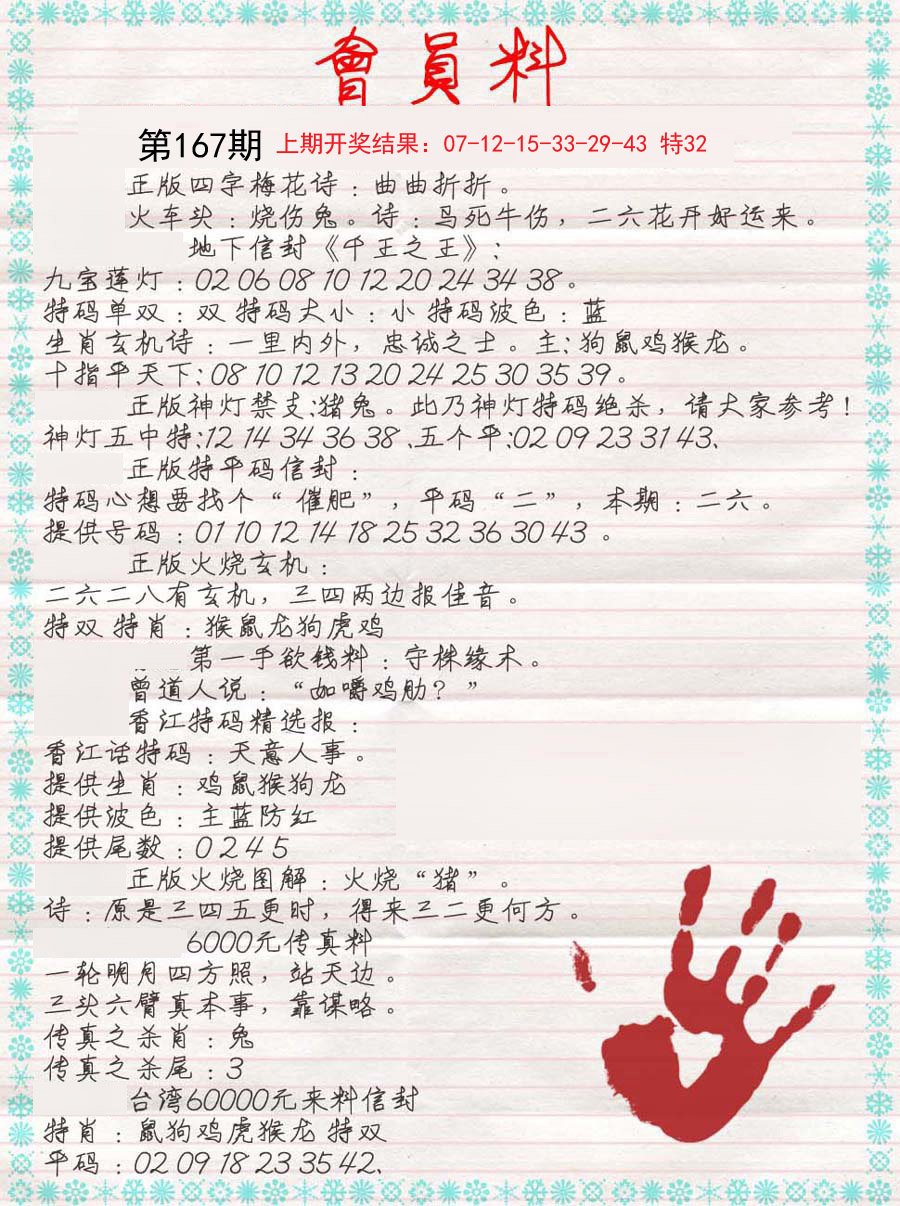 會員料
第167期 上期开奖结果：07-12-15-33-29-43 特32
正版四字梅花诗：曲曲折折。
火车头：烧伤兔。诗：鸟死牛伤，二六花开好运来。
地下信封《千王之王》：
九宝莲灯：02 06 08 10 12 20 24 34 38。
特码单双：双 特码大小：小 特码波色：蓝
生肖玄机诗：一里内外，忠诚之士。主：狗鼠鸡猴龙。
十指平天下：08 10 12 13 20 24 25 30 35 39。
正版神灯禁支：猪兔。此乃神灯特码绝杀，请大家参考！
神灯五中特：12 14 34 36 38、五个平：02 09 23 31 43、
正版特平码信封：
特码心想要找个“催肥”，平码“二”，本期：二六。
提供号码：01 10 12 14 18 25 32 36 30 43 。
正版火烧玄机：
二六二八有玄机，三四两边报佳音。
特双 特肖：猴鼠龙狗虎鸡
第一手欲钱料：守株缘木。
曾道人说：“如嚼鸡肋？”
香江特码精选报：
香江话特码：天意人事。
提供生肖：鸡鼠猴狗龙
提供波色：主蓝防红
提供尾数：0 2 4 5
正版火烧图解：火烧“猪”。
诗：原是三四五更时，得来三二更何方。
6000元传真料
一轮明月四方照，站天边。
三头六臂真本事，靠谋略。
传真之杀肖：兔
传真之杀尾：3
台湾60000元来料信封
特肖：鼠狗鸡虎猴龙 特双
平码：02 09 18 23 35 42、